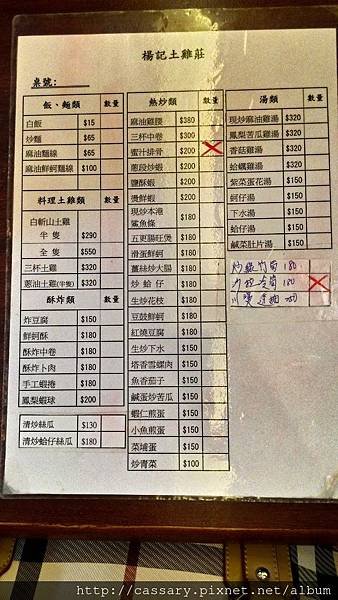 楊記土雞莊
桌號:
飯、麵類 數量
白飯 $15
炒麵 $65
麻油麵線 $65
麻油鮮蚵麵線 $100
料理土雞類 數量
白斬山土雞
半 隻 $290
全 隻 $550
三杯土雞 $320
蔥油土雞(半隻) $320
酥炸類 數量
炸豆腐 $150
鮮蚵酥 $180
酥炸中卷 $180
酥炸卜肉 $180
手工蝦捲 $180
鳳梨蝦球 $200
清炒絲瓜 $130
清炒蛤仔絲瓜 $180
熱炒類 數量
麻油雞腰 $380
三杯中卷 $300
蜜汁排骨 $200
蔥段炒蝦 $200
鹽酥蝦 $200
燙鮮蝦 $200
現炒本港
鯊魚條 $180
五更腸旺煲 $180
滑蛋鮮蚵 $180
薑絲炒大腸 $180
炒 蛤 仔 $180
生炒花枝 $180
豆鼓鮮蚵 $180
紅燒豆腐 $150
生炒下水 $150
塔香雪螺肉 $150
魚香茄子 $150
鹹蛋炒苦瓜 $150
蝦仁煎蛋 $150
小魚煎蛋 $150
菜埔蛋 $150
炒青菜 $100
湯類 數量
現炒麻油雞湯 $320
鳳梨苦瓜雞湯 $320
香菇雞湯 $320
蛤蠣雞湯 $320
紫菜蛋花湯 $150
蚵仔湯 $150
下水湯 $150
蛤仔湯 $150
鹹菜肚片湯 $150
180
180
http://cassary.pixnet.net/album